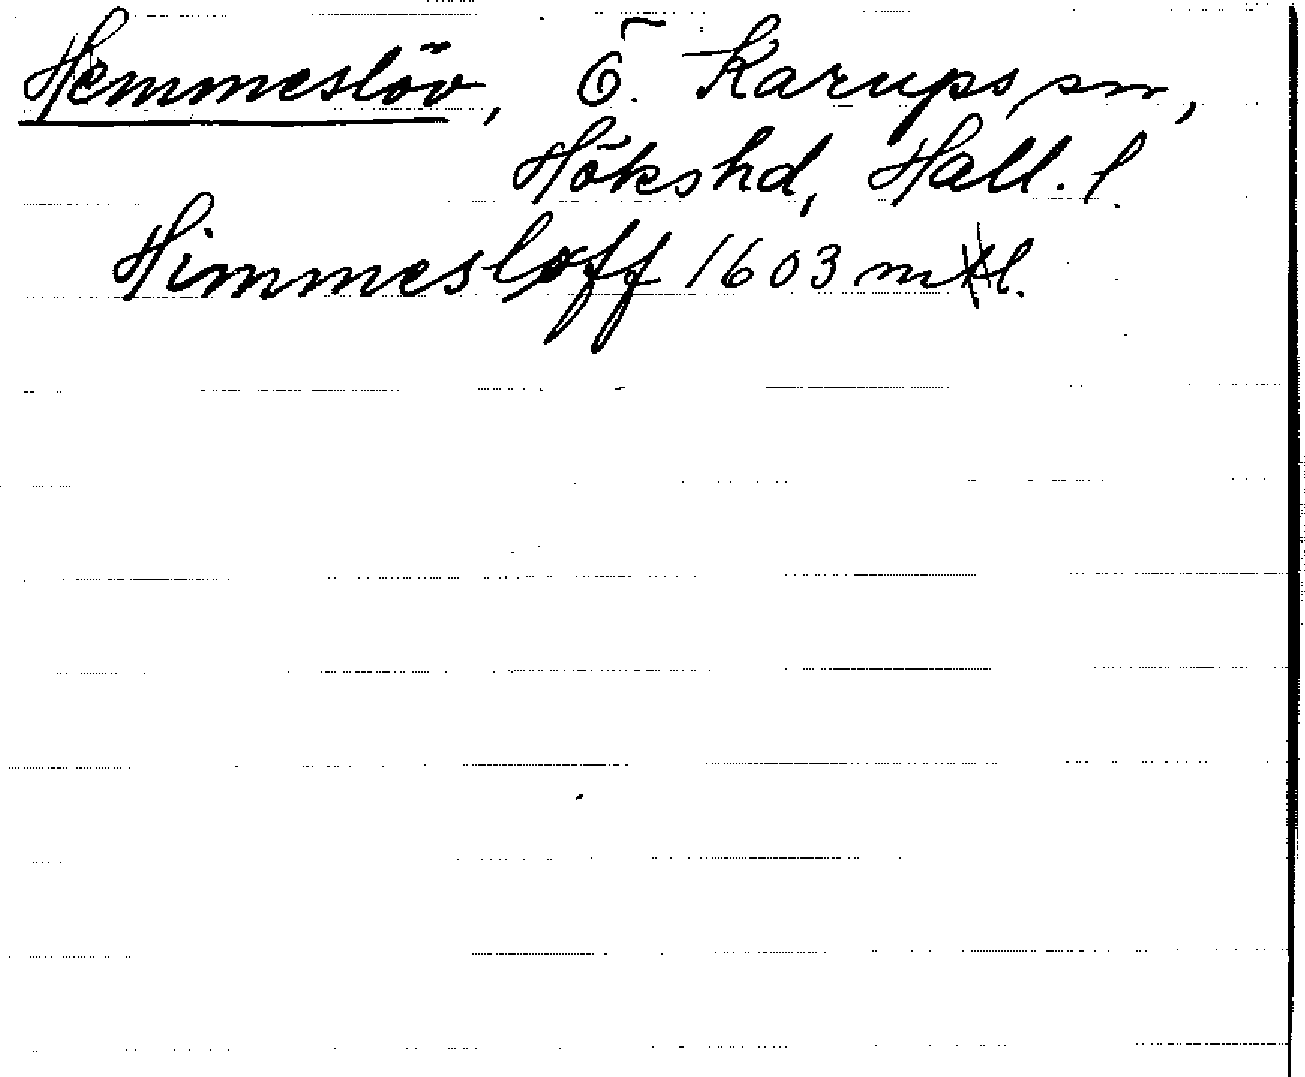 Hemmeslöv, Ö. Karups sn,
Hökshd, Hall. l.
Himmesloff 1603 mtl.